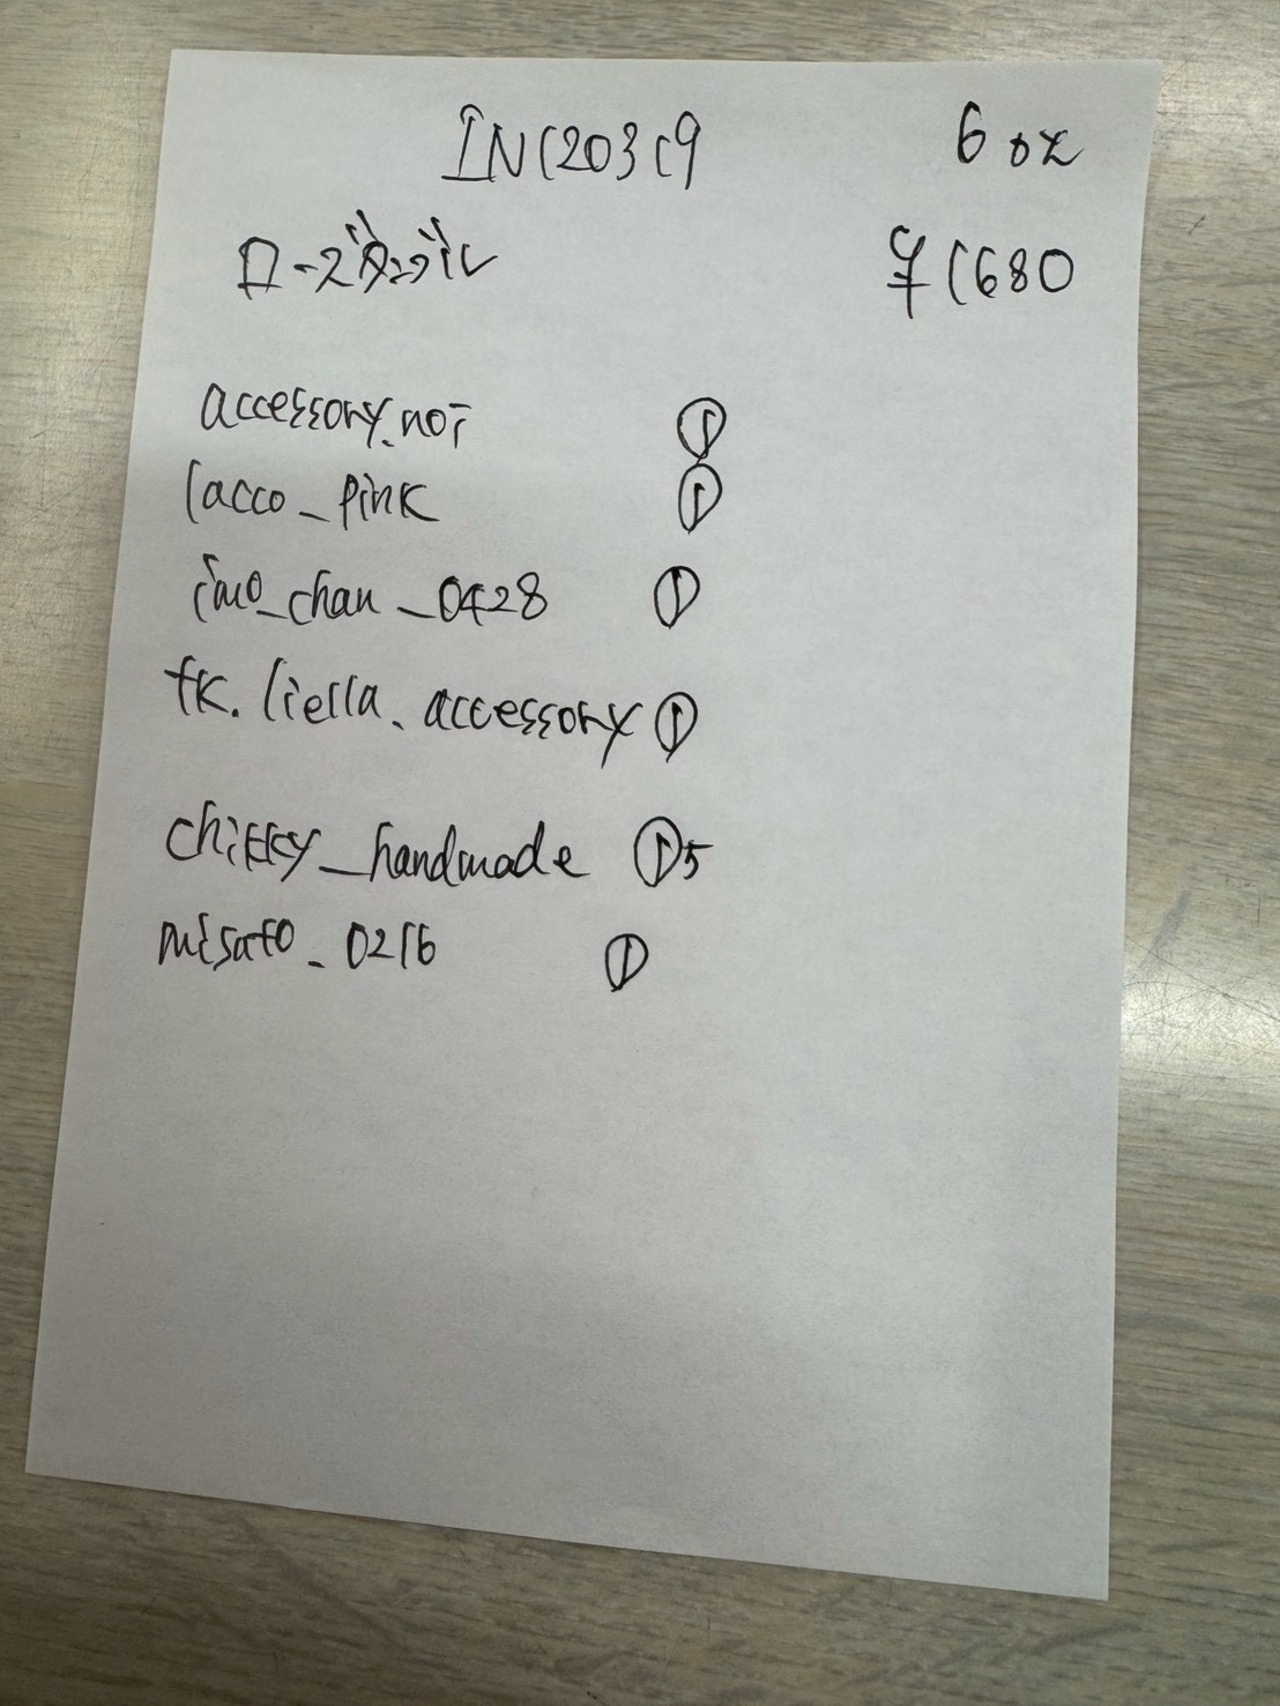 IN120319 6 oz
ローズダズル ¥1680
accessory.noi ①
lacco_pink ①
imo_chan_0428 ①
tk.liella.accessory ①
chikky_handmade ①5
misato_0216 ①